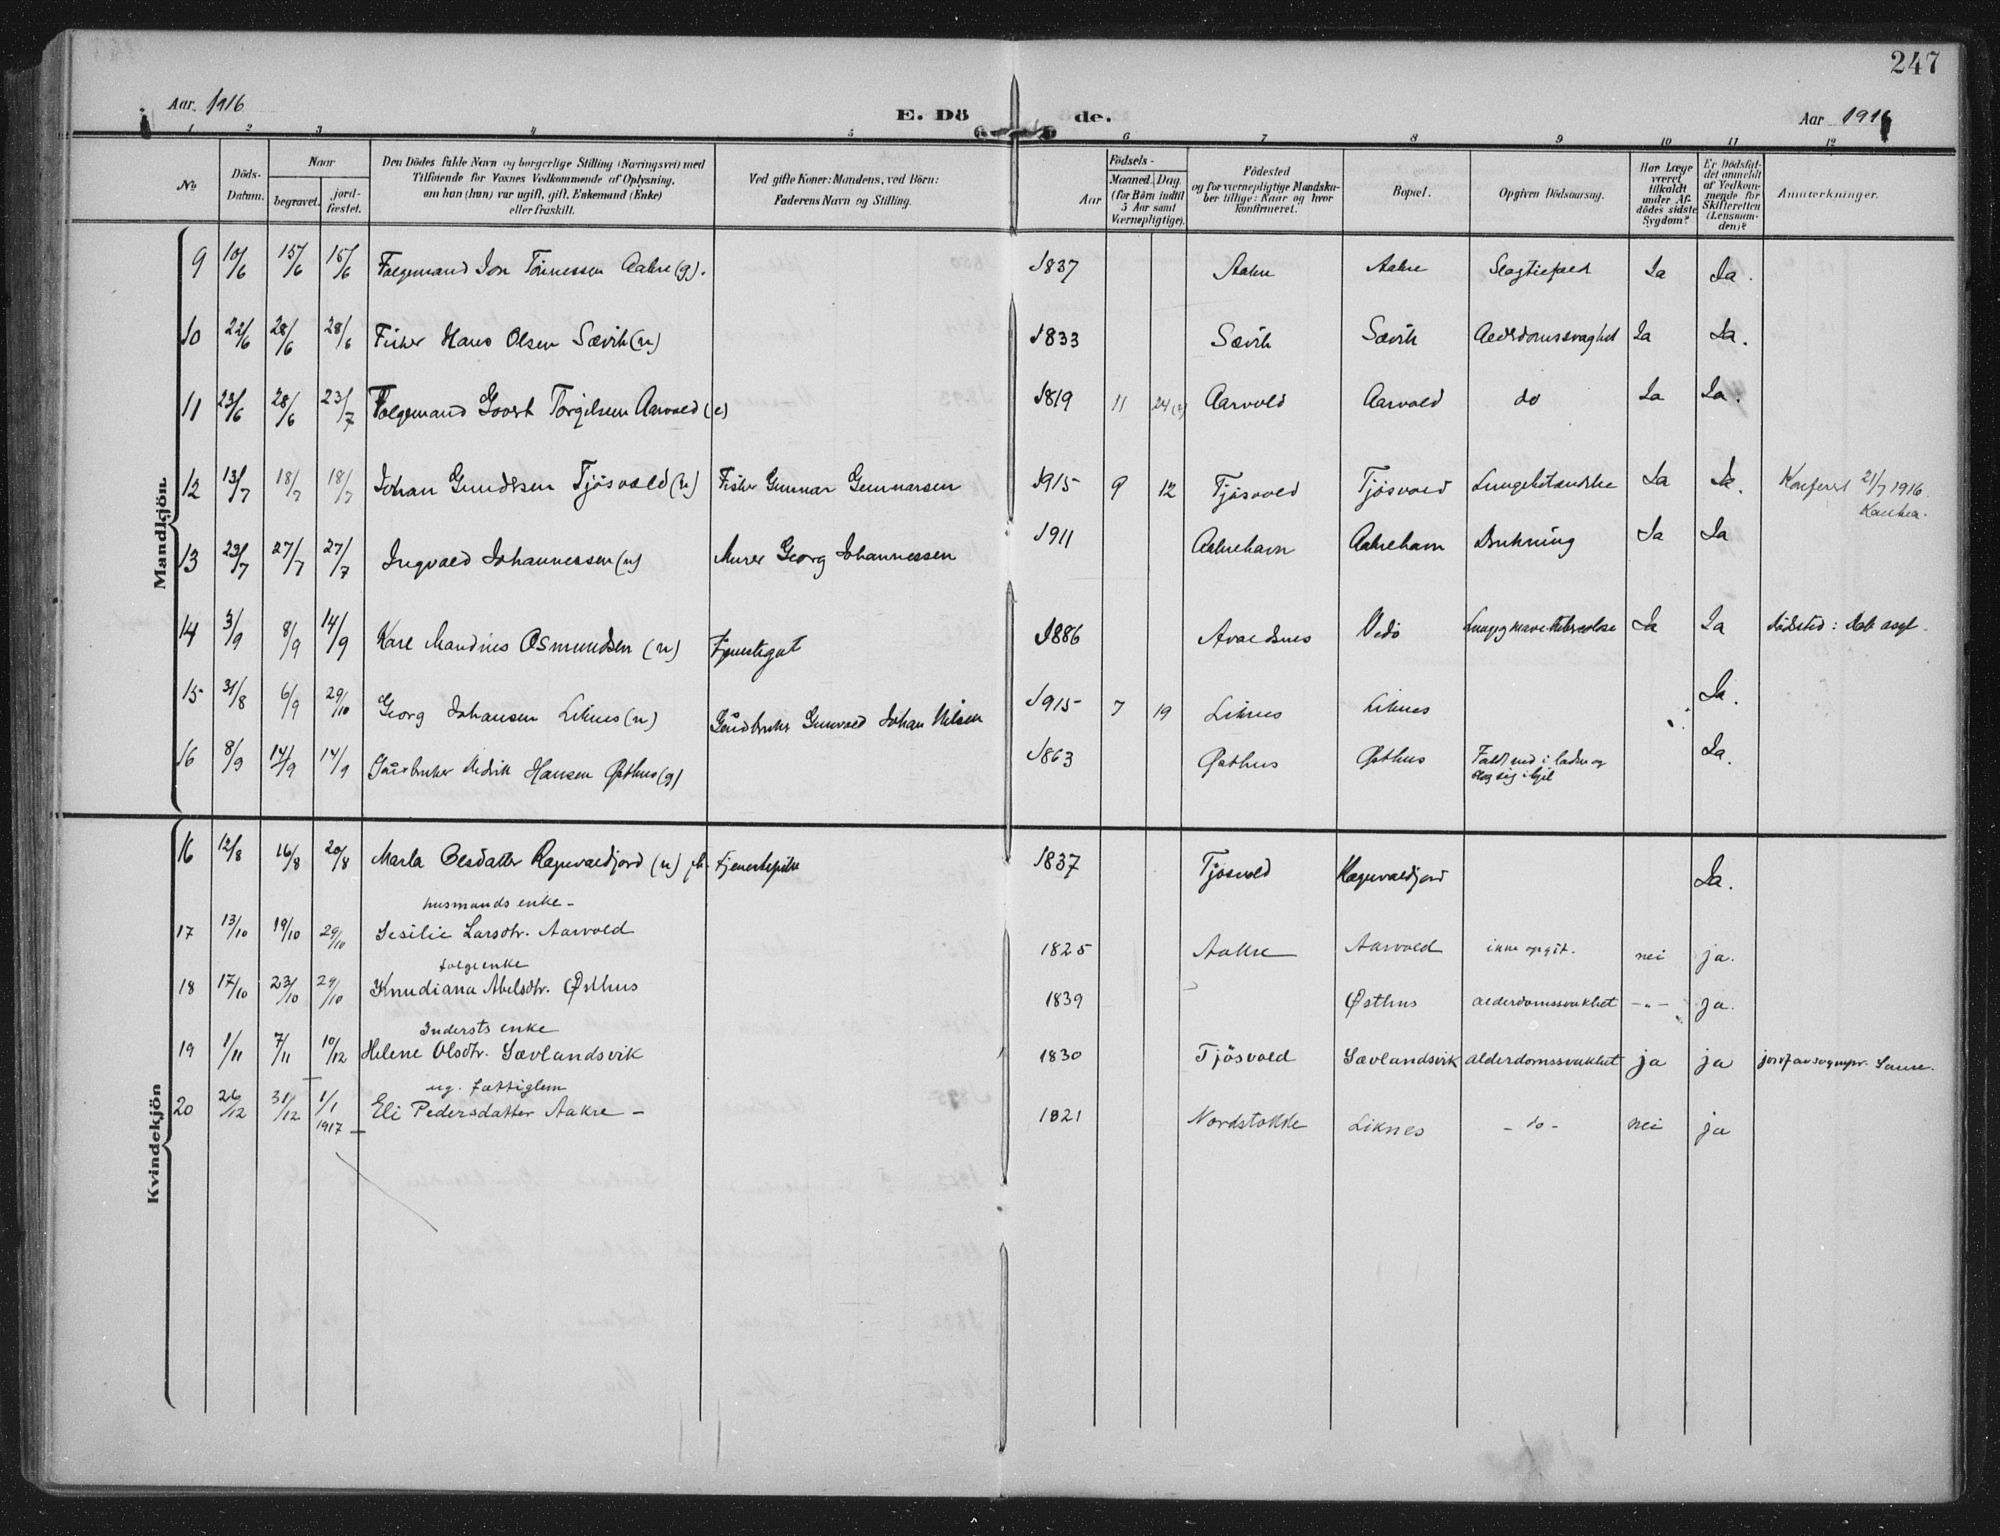 247
Aar 1916 E. Dö de. Aar 1916
1 2 3 4 5 6 7 8 9 10 11 12
No
Döds-Datum.
Naar
begravet.
jordfæstet.
Den Dödes fulde Navn og borgerlige Stilling (Næringsvei) med
Tilföiende for Voxnes Vedkommende af Oplysning,
om han (hun) var ugift, gift, Enkemand (Enke)
eller fraskilt.
Ved gifte Koner: Mandens, ved Börn:
Faderens Navn og Stilling.
Födsels-
Aar
Maaned. Dag.
(for Börn indtil
5 Aar samt
Værnepligtige).
Födested
og for værnepligtige Mandska-
ber tillige: Naar og hvor
konfirmeret.
Bopæl.
Opgiven Dödsaarsag.
Har Læge
været
tilkaldt
under Af-
dödes sidste
Sygdom?
Er Dödsfal-
det anmeldt
af Vedkom-
mende for
Skifteretten
(Lensman-
den)?
Anmærkninger.
Mandkjön.
9 10/6 15/6 15/6 Folgemand Jon Tönnessen Aakre (g). 1837 Aakre Aakre Slagtilfeld Ja Ja.
10 22/6 28/6 28/6 Fisker Hans Olsen Sævik (u) 1833 Sævik Sævik Alderdomssvaghed Ja Ja.
11 23/6 28/6 23/7 Folgemand Govert Torgilsen Aarvold (e) 1819 11 24 Aarvold Aarvold do Ja Ja.
12 13/7 18/7 18/7 Johan Gundersen Tjösvold (u) Fisker Gunnar Gunnarsen 1915 9 12 Tjösvold Tjösvold Lungebetændelse Ja Ja. 21/7 1916
13 23/7 27/7 27/7 Ingvald Johannessen (u) Murer Georg Johannessen 1911 Aakrehavn Aakrehavn Drukning Ja Ja
14 3/9 8/9 14/9 Karl Mandius Osmundsen (u) Tjenestegut 1886 Avaldsnes Vedö Ja Ja dödsted:
15 31/8 6/9 29/10 Georg Johansen Liknes (u) Gårdbruker Gunvald Johan Nilsen 1915 7 19 Liknes Liknes Ja.
16 8/9 14/9 14/9 Gårdbruker Hansen Østhus (g) 1863 Østhus Østhus Faldt ned i laden og
slog sig ihjel Ja.
Kvindekjön
16 12/8 16/8 20/8 Marta Olsdatter Ragnvaldjord (u) Tjenestepike 1837 Tjösvold Ragnvaldjord Ja.
husmands enke -
17 13/10 19/10 29/10 Sesilie Larsdtr. Aarvold 1825 Aakre Aarvold ikke opgit. nei ja.
folgeenke
18 17/10 23/10 29/10 Knudiana Abelsdtr. Østhus 1839 Østhus alderdomssvakhet - " - ja.
Indersts enke
19 1/11 7/11 10/12 Helene Olsdtr. Sævlandsvik 1830 Tjösvold Sævlandsvik alderdomssvakhet ja ja
ug. fattiglem
20 26/12 31/12 1/1 1917 Eli Pedersdatter Aakre - 1821 Nordstokke Liknes - do - nei ja